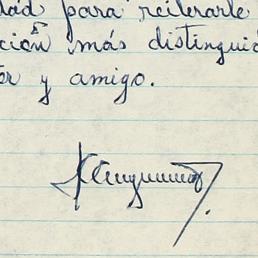 dad para reiterarle
ción más distinguid
or y amigo.